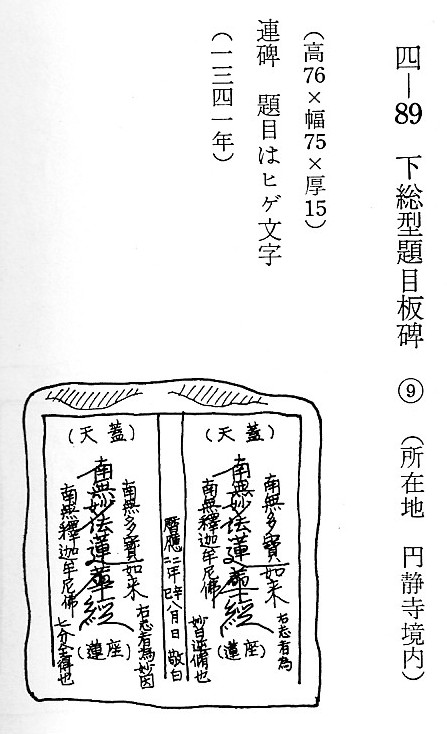 四―89　下総型題目板碑　⑨　（所在地　円静寺境内）
（高76×幅75×厚15）
連碑　題目はヒゲ文字
（一三四一年）
（天蓋）
右志者為
南無多寶如来
南無妙法蓮華經
（蓮座）
南無釋迦牟尼佛
逆脩也
暦應二二年 八月日 敬白
（天蓋）
右志者為妙因
南無多寶如来
南無妙法蓮華經
（蓮座）
南無釋迦牟尼佛
七分全得也